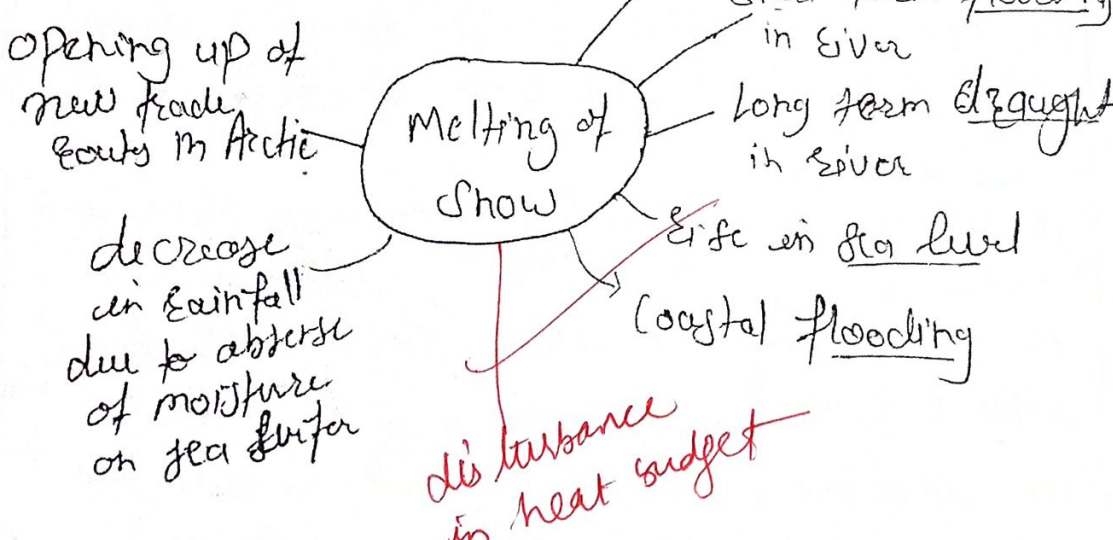 Opening up of
new trade
routs in Arctic
Melting of
Snow
flooding
in river
Long term draught
in river
rise in sea level
Coastal flooding
decrease
in rainfall
due to absense
of moisture
on sea
disturbance
in heat budget